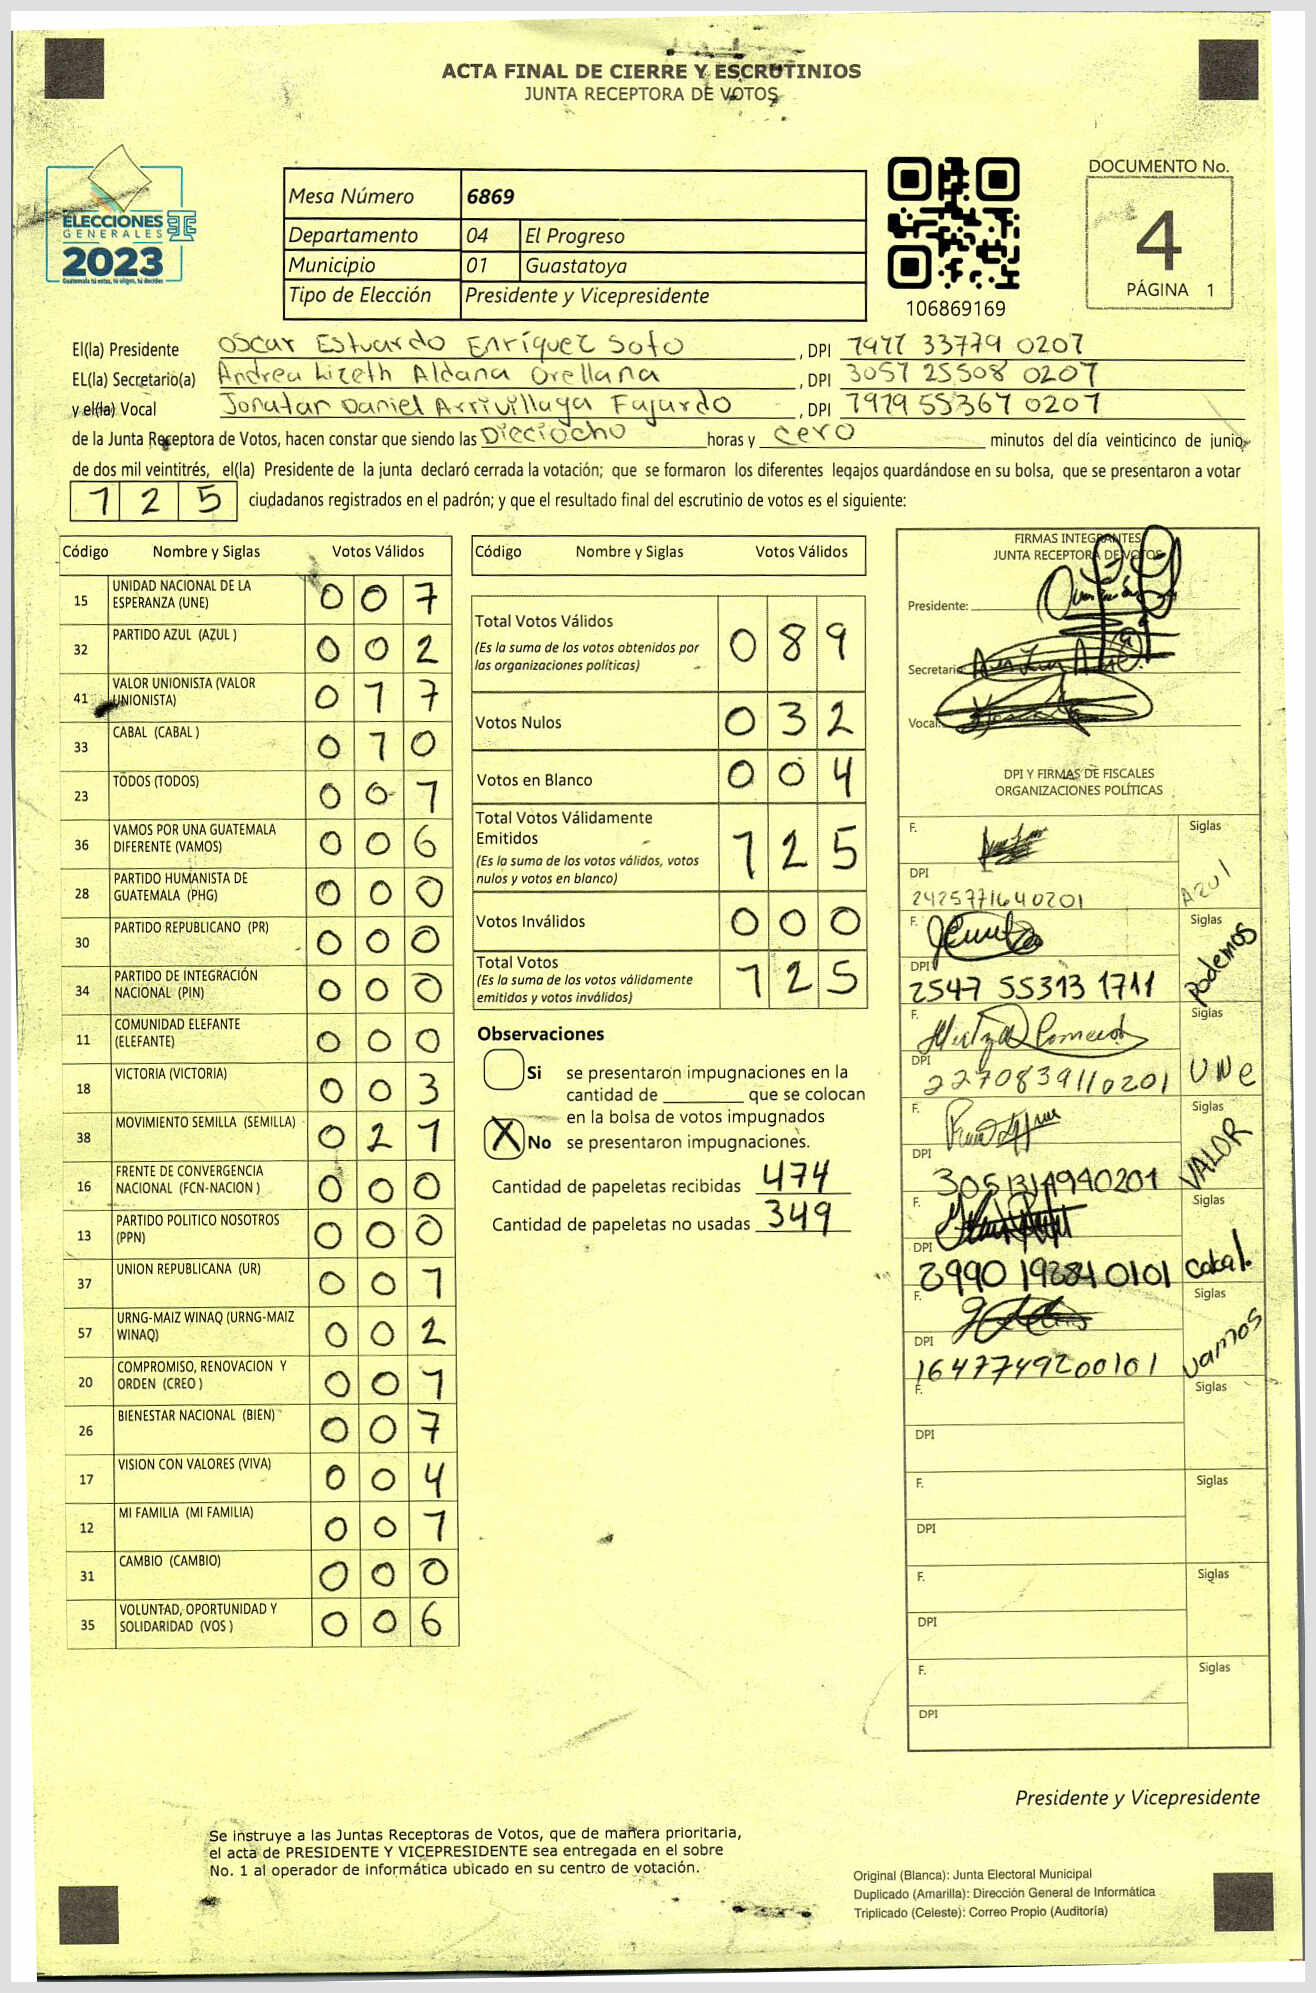 ACTA FINAL DE CIERRE Y ESCRUTINIOS
JUNTA RECEPTORA DE VOTOS
ELECCIONES
GENERALES
2023
Guatemala tú votas, tú eliges, tú decides
Mesa Número 6869
Departamento 04 El Progreso
Municipio 01 Guastatoya
Tipo de Elección Presidente y Vicepresidente
106869169
DOCUMENTO No.
4
PÁGINA 1
El(la) Presidente Oscar Estuardo Enríquez Soto , DPI
EL(la) Secretario(a) Andrea Lizeth Aldana Orellana , DPI 3051 25508 0201
y el(la) Vocal Jonatan Daniel Arrivillaga Fajardo , DPI 1919 55361 0201
de la Junta Receptora de Votos, hacen constar que siendo las Dieciocho horas y cero minutos del día veinticinco de junio,
de dos mil veintitrés, el(la) Presidente de la junta declaró cerrada la votación; que se formaron los diferentes legajos guardándose en su bolsa, que se presentaron a votar
1 2 5 ciudadanos registrados en el padrón; y que el resultado final del escrutinio de votos es el siguiente:
Código Nombre y Siglas Votos Válidos
15 UNIDAD NACIONAL DE LA ESPERANZA (UNE) 0 0 7
32 PARTIDO AZUL (AZUL ) 0 0 2
41 VALOR UNIONISTA (VALOR UNIONISTA) 0 1 7
33 CABAL (CABAL ) 0 1 0
23 TODOS (TODOS) 0 0 1
36 VAMOS POR UNA GUATEMALA DIFERENTE (VAMOS) 0 0 6
28 PARTIDO HUMANISTA DE GUATEMALA (PHG) 0 0 0
30 PARTIDO REPUBLICANO (PR) 0 0 0
34 PARTIDO DE INTEGRACIÓN NACIONAL (PIN) 0 0 0
11 COMUNIDAD ELEFANTE (ELEFANTE) 0 0 0
18 VICTORIA (VICTORIA) 0 0 3
38 MOVIMIENTO SEMILLA (SEMILLA) 0 2 1
16 FRENTE DE CONVERGENCIA NACIONAL (FCN-NACION ) 0 0 0
13 PARTIDO POLITICO NOSOTROS (PPN) 0 0 0
37 UNION REPUBLICANA (UR) 0 0 1
57 URNG-MAIZ WINAQ (URNG-MAIZ WINAQ) 0 0 2
20 COMPROMISO, RENOVACION Y ORDEN (CREO ) 0 0 1
26 BIENESTAR NACIONAL (BIEN) 0 0 7
17 VISION CON VALORES (VIVA) 0 0 4
12 MI FAMILIA (MI FAMILIA) 0 0 1
31 CAMBIO (CAMBIO) 0 0 0
35 VOLUNTAD, OPORTUNIDAD Y SOLIDARIDAD (VOS ) 0 0 6
Código Nombre y Siglas Votos Válidos
Total Votos Válidos 0 8 9
(Es la suma de los votos obtenidos por
las organizaciones políticas)
Votos Nulos 0 3 2
Votos en Blanco 0 0 4
Total Votos Válidamente
Emitidos 1 2 5
(Es la suma de los votos válidos, votos
nulos y votos en blanco)
Votos Inválidos 0 0 0
Total Votos 1 2 5
(Es la suma de los votos válidamente
emitidos y votos inválidos)
Observaciones
Si se presentaron impugnaciones en la
cantidad de ________ que se colocan
en la bolsa de votos impugnados
X No se presentaron impugnaciones.
Cantidad de papeletas recibidas 474
Cantidad de papeletas no usadas 349
FIRMAS INTEGRANTES
JUNTA RECEPTORA DE VOTOS
Presidente:
Secretario
Vocal:
DPI Y FIRMAS DE FISCALES
ORGANIZACIONES POLÍTICAS
F. Siglas
DPI
2425771640201 Azul
F. Siglas
DPI
2547 55313 1711 Podemos
F. Siglas
DPI
2270839110201 UNe
F. Siglas
DPI
VALOR
F. Siglas
DPI
cabal.
F. Siglas
DPI
1647749200101 vamos
F. Siglas
DPI
F. Siglas
DPI
F. Siglas
DPI
F. Siglas
DPI
Presidente y Vicepresidente
Se instruye a las Juntas Receptoras de Votos, que de manera prioritaria,
el acta de PRESIDENTE Y VICEPRESIDENTE sea entregada en el sobre
No. 1 al operador de informática ubicado en su centro de votación.
Original (Blanca): Junta Electoral Municipal
Duplicado (Amarilla): Dirección General de Informática
Triplicado (Celeste): Correo Propio (Auditoría)